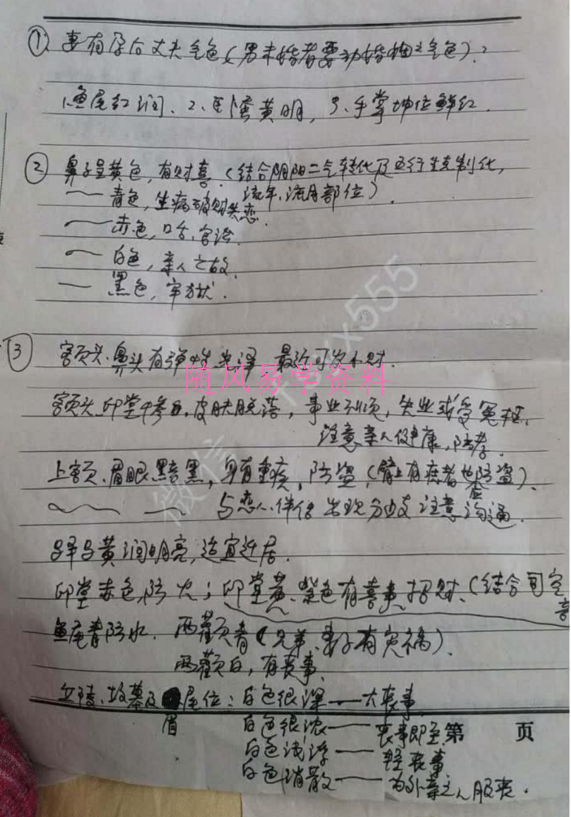 ① 妻有孕后丈夫气色(男未婚者要动婚姻之气色):
1.鱼尾红润、2、卧蚕黄明, 3、手掌坤位鲜红.
② 鼻子呈黄色,有财喜(结合阴阳二气转化及五行生克制化,
青色,生病破财失恋. 流年、流月部位)
赤色,口舌、官讼
白色,亲人之故
黑色,牢狱.
③ 额头、鼻头有弹性光泽 最近可发小财.
随风易学资料
额头、印堂中参白,皮肤脱落,事业不顺,失业或受冤枉.
注意亲人健康,防孝.
上额、眉眼黯黑,身有重疾,防盗(肾上有疾者也防盗).
与恋人、伴侣出现分歧 注意沟通.
驿马黄润明亮,适宜迁居.
印堂赤色,防火;印堂黄、紫色有喜事招财.(结合司空看
鱼尾青防水. 两颧青(兄弟、妻子有灾祸).
两颧白,有丧事.
丘陵、坟墓及眉尾位:白色很深——大丧事
白色很浓——丧事即至
第 页
白色浅浮——轻丧事
白色消散——为外亲之人服丧.